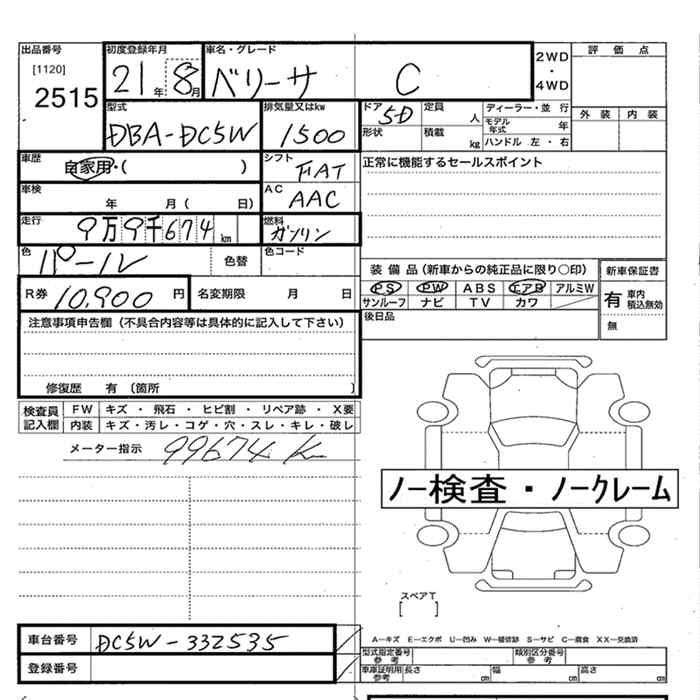 出品番号 初度登録年月 車名・グレード 評価点
[1120] 2WD ・ 4WD
2515 21年 8月 ベリーサ C
外装 内装
型式 排気量又はkw ドア 5D 定員 人 ディーラー・並行
DBA-DC5W 1500 形状 積載 kg モデル年式 年
ハンドル 左・右
車歴 自家用・( ) シフト FAT 正常に機能するセールスポイント
車検 年 月 ( 日) AC AAC
走行 9万9千674km 燃料 ガソリン
色 パール 色替 色コード
装備品(新車からの純正品に限り○印) 新車保証書
R券 10,900円 名変期限 月 日 PS PW ABS エアB アルミW 有 車内積込無効
サンルーフ ナビ TV カワ
注意事項申告欄(不具合内容等は具体的に記入して下さい) 後日品 無
修復歴 有 (箇所 )
検査員記入欄 FW キズ・飛石・ヒビ割・リペア跡・X要
内装 キズ・汚レ・コゲ・穴・スレ・キレ・破レ
メーター指示 99674K
ノー検査・ノークレーム
スペアT
[ ]
車台番号 DC5W-332535 A-キズ E-エクボ U-凹み W-補修跡 S-サビ C-腐食 XX-交換済
登録番号 型式指定番号 参考 類別区分番号 参考
車庫証明用 参考 長さ cm 幅 cm 高さ cm